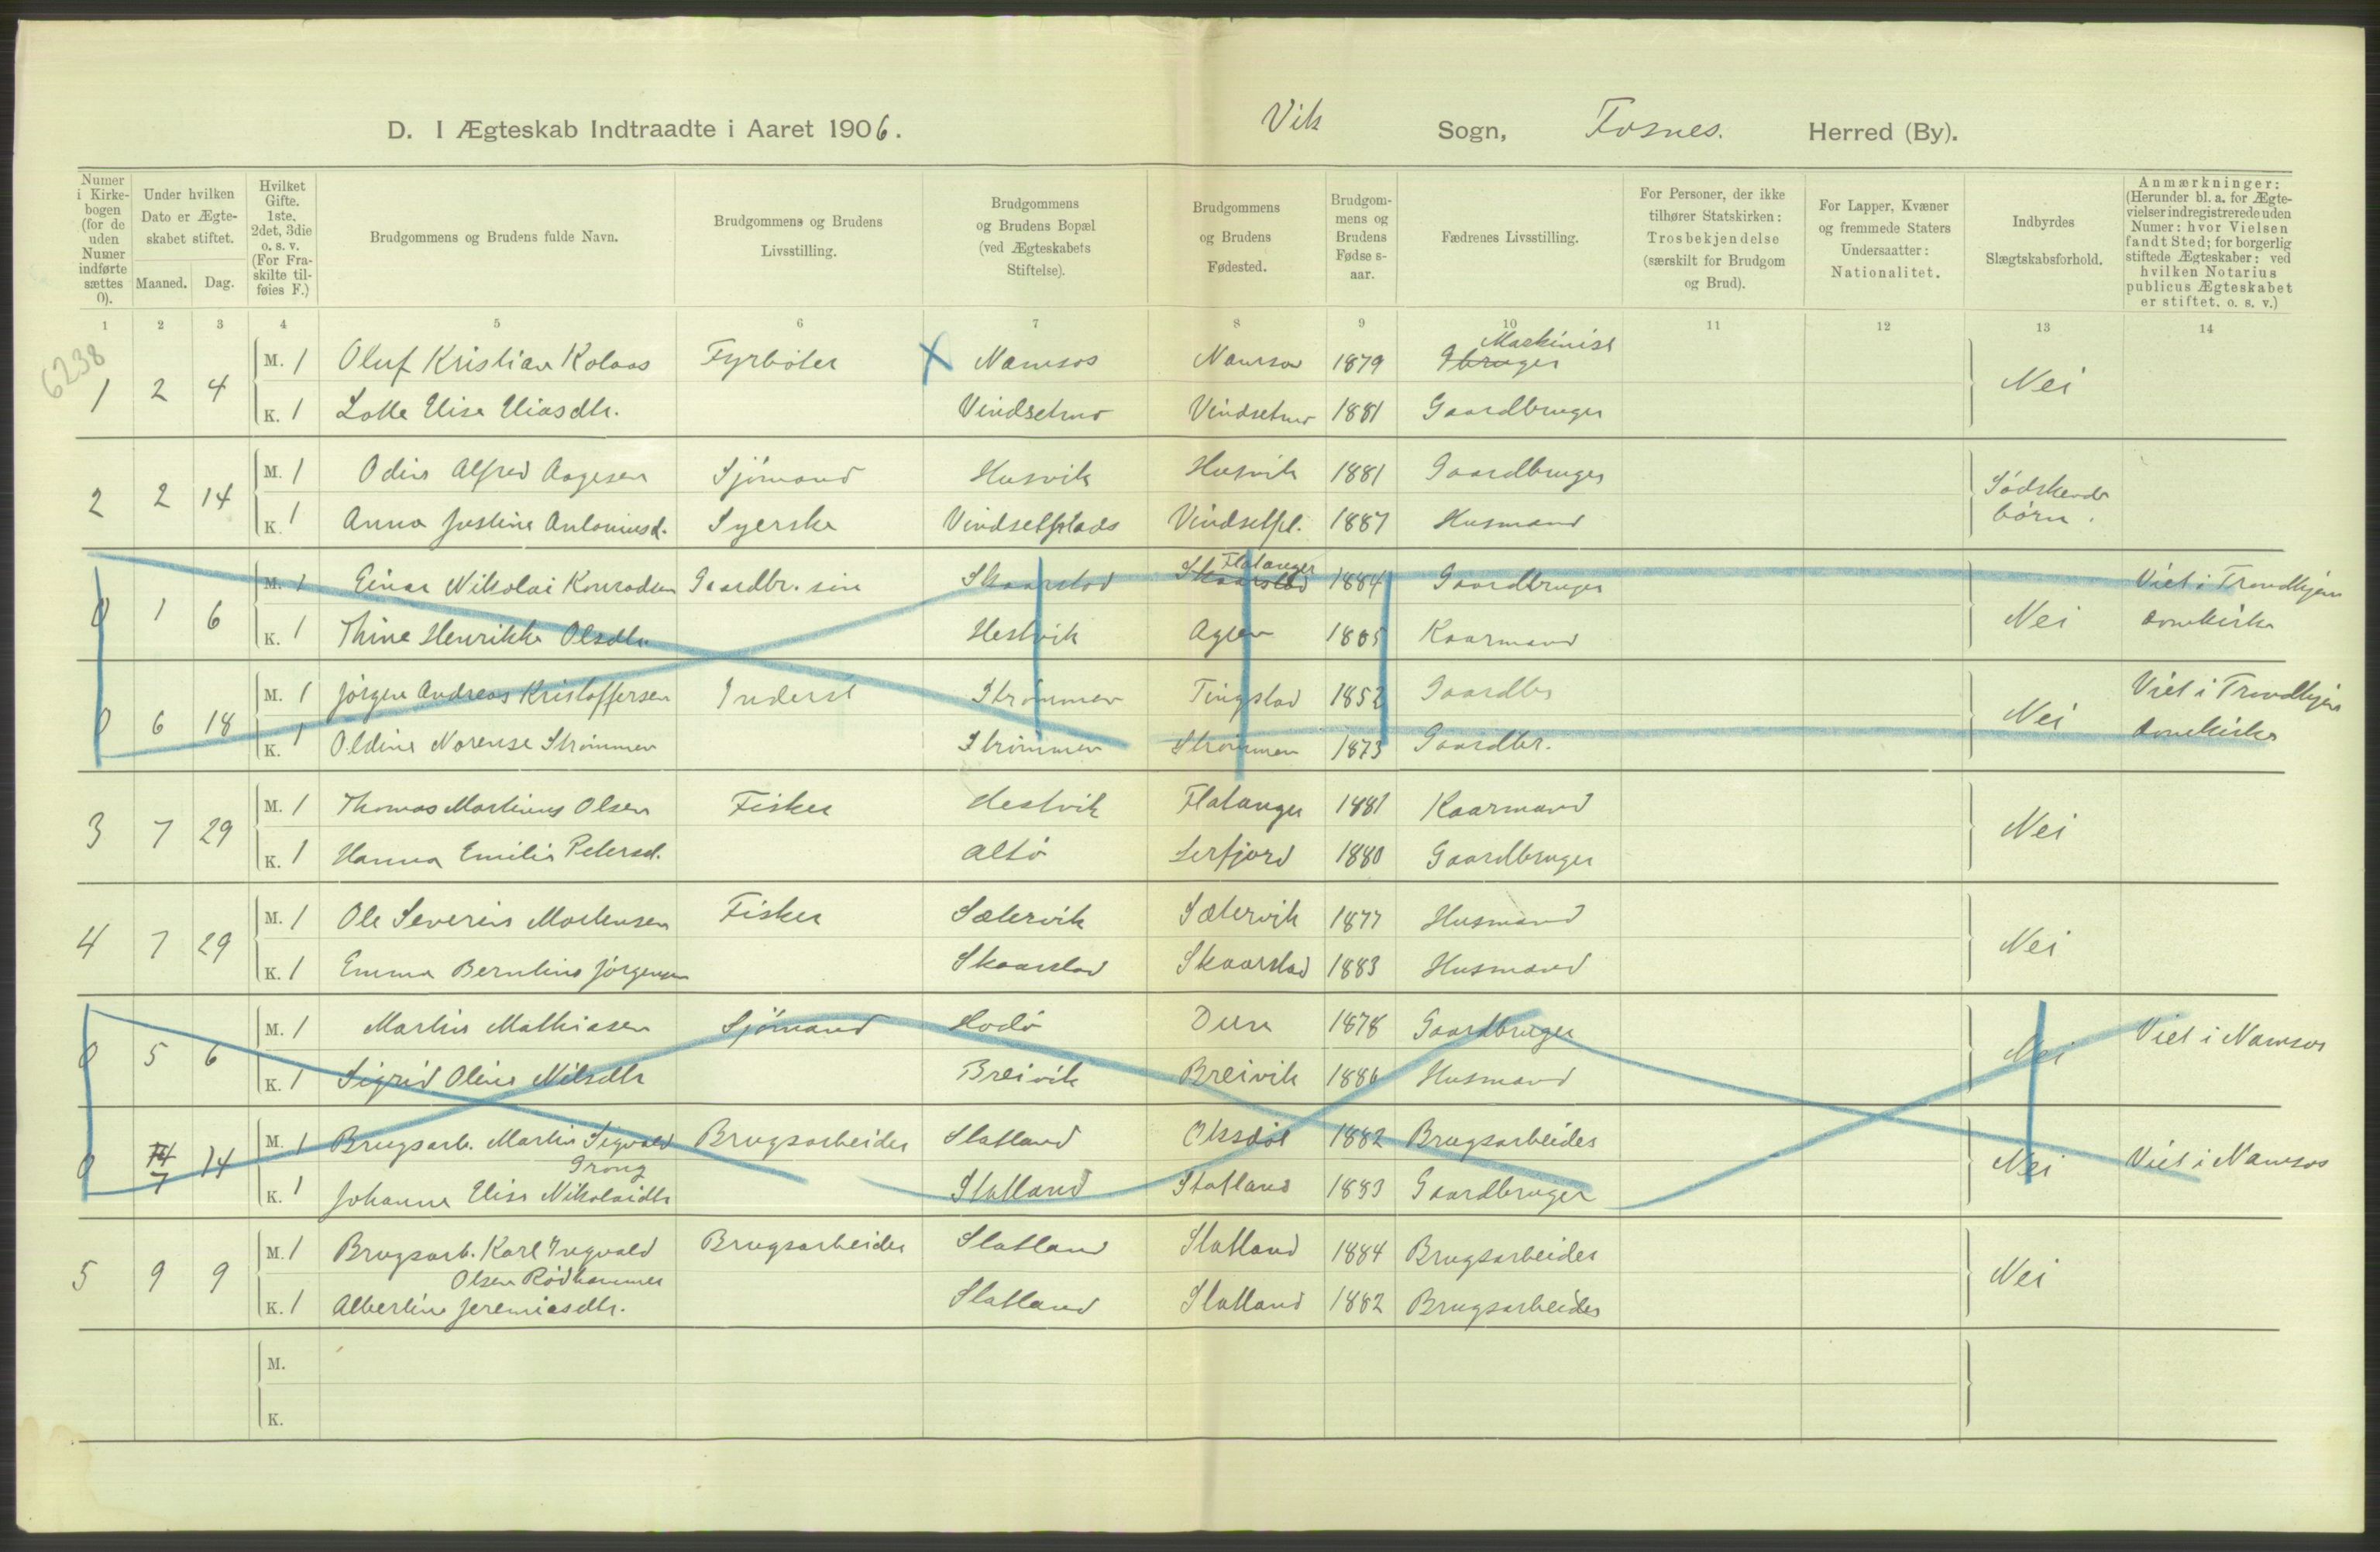 D. I Ægteskab Indtraadte i Aaret 1906. Vik Sogn, Fosnes. Herred (By).
Numer i Kirkebogen (for de uden Numer indførte sættes 0).
Under hvilken Dato er Ægteskabet stiftet.
Maaned. Dag.
Hvilket Gifte. 1ste, 2det, 3die o. s. v. (For Fraskilte tilføies F.)
Brudgommens og Brudens fulde Navn.
Brudgommens og Brudens Livsstilling.
Brudgommens og Brudens Bopæl (ved Ægteskabets Stiftelse).
Brudgommens og Brudens Fødested.
Brudgommens og Brudens Fødselsaar.
Fædrenes Livsstilling.
For Personer, der ikke tilhører Statskirken: Trosbekjendelse (særskilt for Brudgom og Brud).
For Lapper, Kvæner og fremmede Staters Undersaatter: Nationalitet.
Indbyrdes Slægtskabsforhold.
Anmærkninger: (Herunder bl. a. for Ægtevielser indregistrerede uden Numer: hvor Vielsen fandt Sted; for borgerlig stiftede Ægteskaber: ved hvilken Notarius publicus Ægteskabet er stiftet. o. s. v.)
1 2 3 4 5 6 7 8 9 10 11 12 13 14
6238
Maskinist
1 2 4 M. 1 Oluf Kristian Kolaas Fyrbøter X Namsos Namsos 1879 Gbruger Nei
K. 1 Lotte Elise Eliasdtr. Vindsetmo Vindsetmo 1881 Gaardbruger
2 2 14 M. 1 Odin Alfred Aagesen Sjømand Husvik Husvik 1881 Gaardbruger Södskende
K. 1 Anna Justine Antoniusd. Syerske Vindsetplads Vindsetpl. 1887 Husmand börn.
Flatanger
0 1 6 M. 1 Einar Nikolai Konradsen Gaardbr. sön Skaarstad Skaarstad 1884 Gaardbruger Nei Viet i Trondhjem
K. 1 Thine Henrikke Olsdtr Hestvik Agsen 1885 Kaarmand domkirke
0 6 18 M. 1 Jörgen Andreas Kristoffersen Inderst Strömmen Tingstad 1852 Gaardbr Nei Viet i Trondhjem
K. 1 Oldine Norense Strömmen Strömmen Strömmen 1873 Gaardbr. domkirke
3 7 29 M. 1 Thomas Martinus Olsen Fisker Hestvik Flatanger 1881 Kaarmand Nei
K. 1 Hanna Emilie Petersd. Altö Lerfjord 1880 Gaardbruger
4 7 29 M. 1 Ole Severin Mortensen Fisker Sætervik Sætervik 1877 Husmand Nei
K. 1 Emma Berntine Jörgensen Skaarstad Skaarstad 1883 Husmand
0 5 6 M. 1 Martin Mathiasen Sjömand Hodö Dun 1878 Gaardbruger Nei Viet i Namsos
K. 1 Sigrid Oline Nilsdtr Breivik Breivik 1886 Husmand
0 14 7 14 M. 1 Brugsarb. Martin Sigvald Brugsarbeider Statland Oksdöl 1882 Brugsarbeider Nei Viet i Namsos
Grong
K. 1 Johanna Elise Nikolaidtr Statland Statland 1883 Gaardbruger
5 9 9 M. 1 Brugsarb. Karl Ingvald Brugsarbeider Statland Statland 1884 Brugsarbeider Nei
Olsen Rödhammer
K. 1 Albertine Jeremiasdtr. Statland Statland 1882 Brugsarbeider
M.
K.